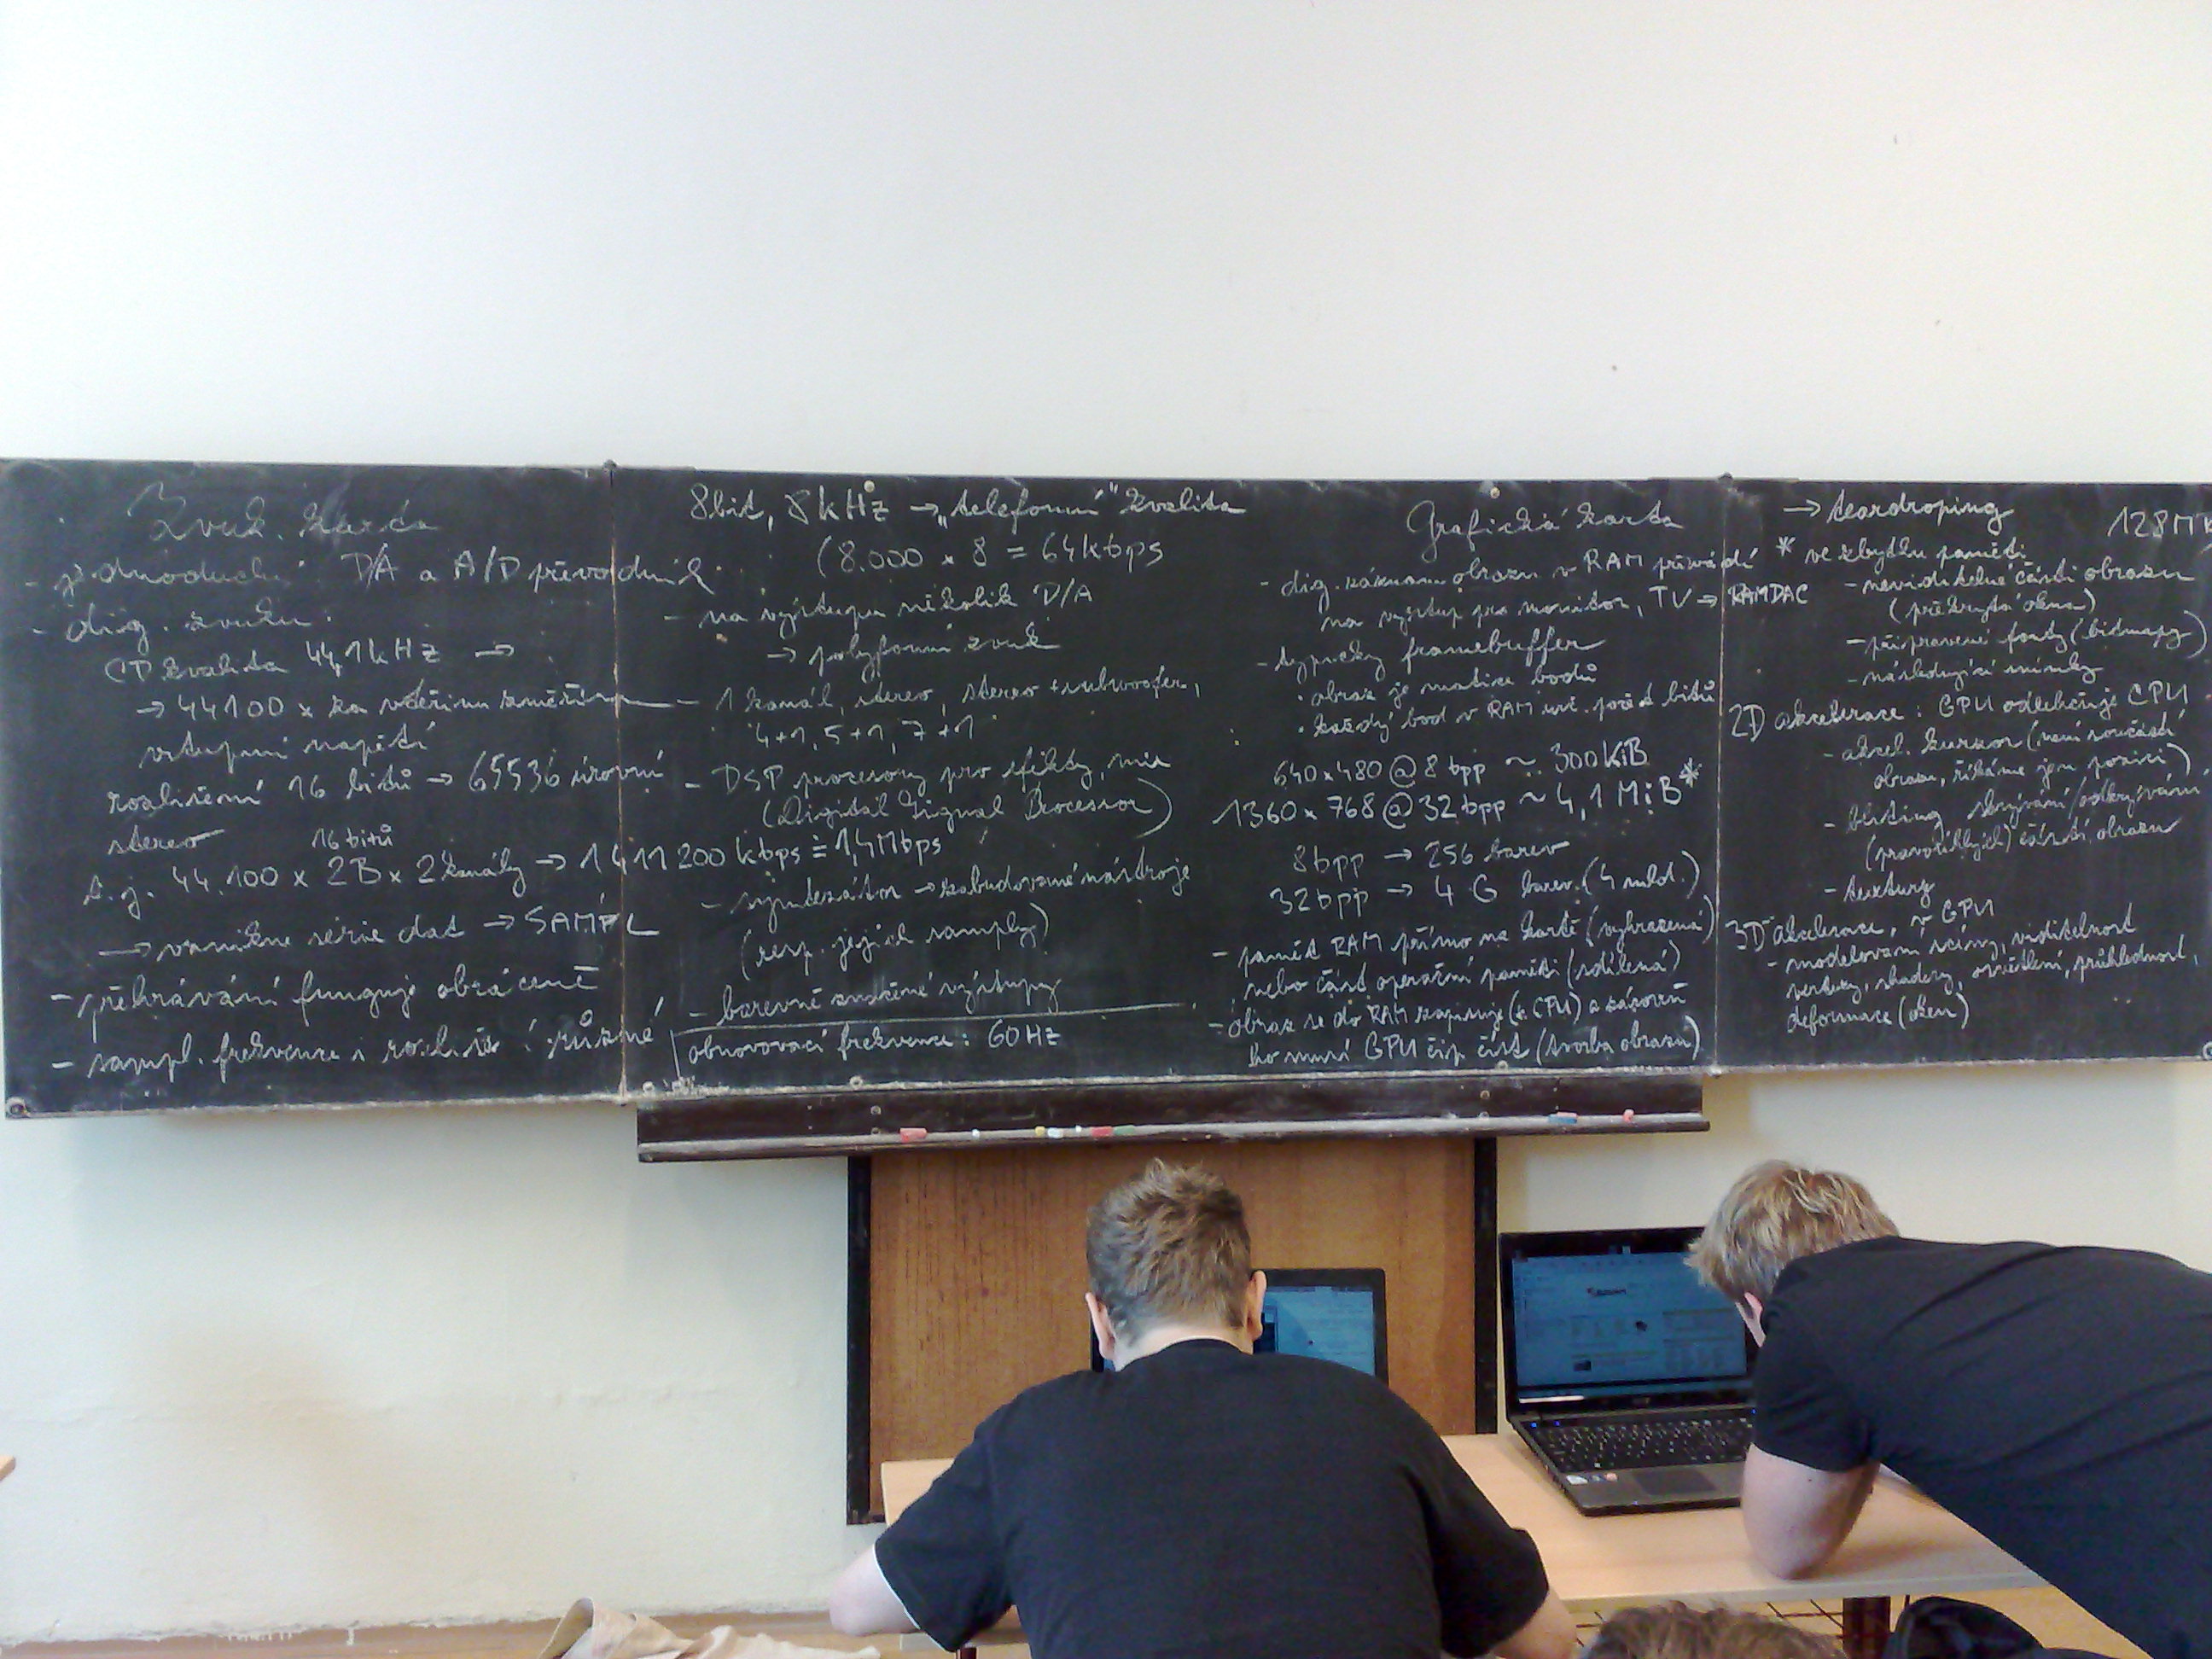 Zvuk. karta
- jednoduchý D/A a A/D převodník
- dig. zvuku:
CD kvalita 44,1kHz →
→ 44100 x za vteřinu změříme
vstupní napětí
rozlišení 16 bitů → 65536 úrovní
stereo
16 bitů
t.j. 44.100 x 2B x 2 kanály → 1 411 200 kbps ≐ 1,4Mbps
→ vznikne série dat → SAMPL
- přehrávání funguje obráceně
- sampl. frekvence i rozliš. různé
8bit, 8kHz → „telefonní" kvalita
(8.000 x 8 = 64kbps
- na výstupu několik D/A
→ polyfonní zvuk
- 1 kanál, stereo, stereo + subwoofer,
4+1, 5+1, 7+1
- DSP procesory pro efekty, mix
(Digital Signal Processor)
- syntezátor → zabudované nástroje
(resp. jejich samply)
- barevně značené výstupy
obnovovací frekvence: 60Hz
Grafická karta
- dig. záznam obrazu v RAM převádí
na výstup pro monitor, TV → RAMDAC
- typicky framebuffer
· obraz je matice bodů
· každý bod v RAM urč. počet bitů
640x480 @ 8 bpp ~ 300KiB
1360x768 @ 32 bpp ~ 4,1 MiB*
8bpp → 256 barev
32bpp → 4 G barev (4 mld.)
- paměť RAM přímo na kartě (vyhrazená)
nebo část operační paměti (sdílená)
- obraz se do RAM zapisuje (z CPU) a zároveň
ho musí GPU čip číst (tvorba obrazu)
→ teardroping
128M
* ve zbytku paměti
- neviditelné části obrazu
(překrytá okna)
- připravené fonty (bitmapy)
- následující snímky
2D akcelerace: GPU odlehčuje CPU
- akcel. kurzor (není součástí
obrazu, říkáme jen pozici)
- bliting, skrývání/odkrývání
(pravoúhlých) částí obrazu
- textury
3D akcelerace, v GPU
- modelování scény, viditelnost
vertexy, shadery, osvětlení, průhlednost,
deformace (džen)